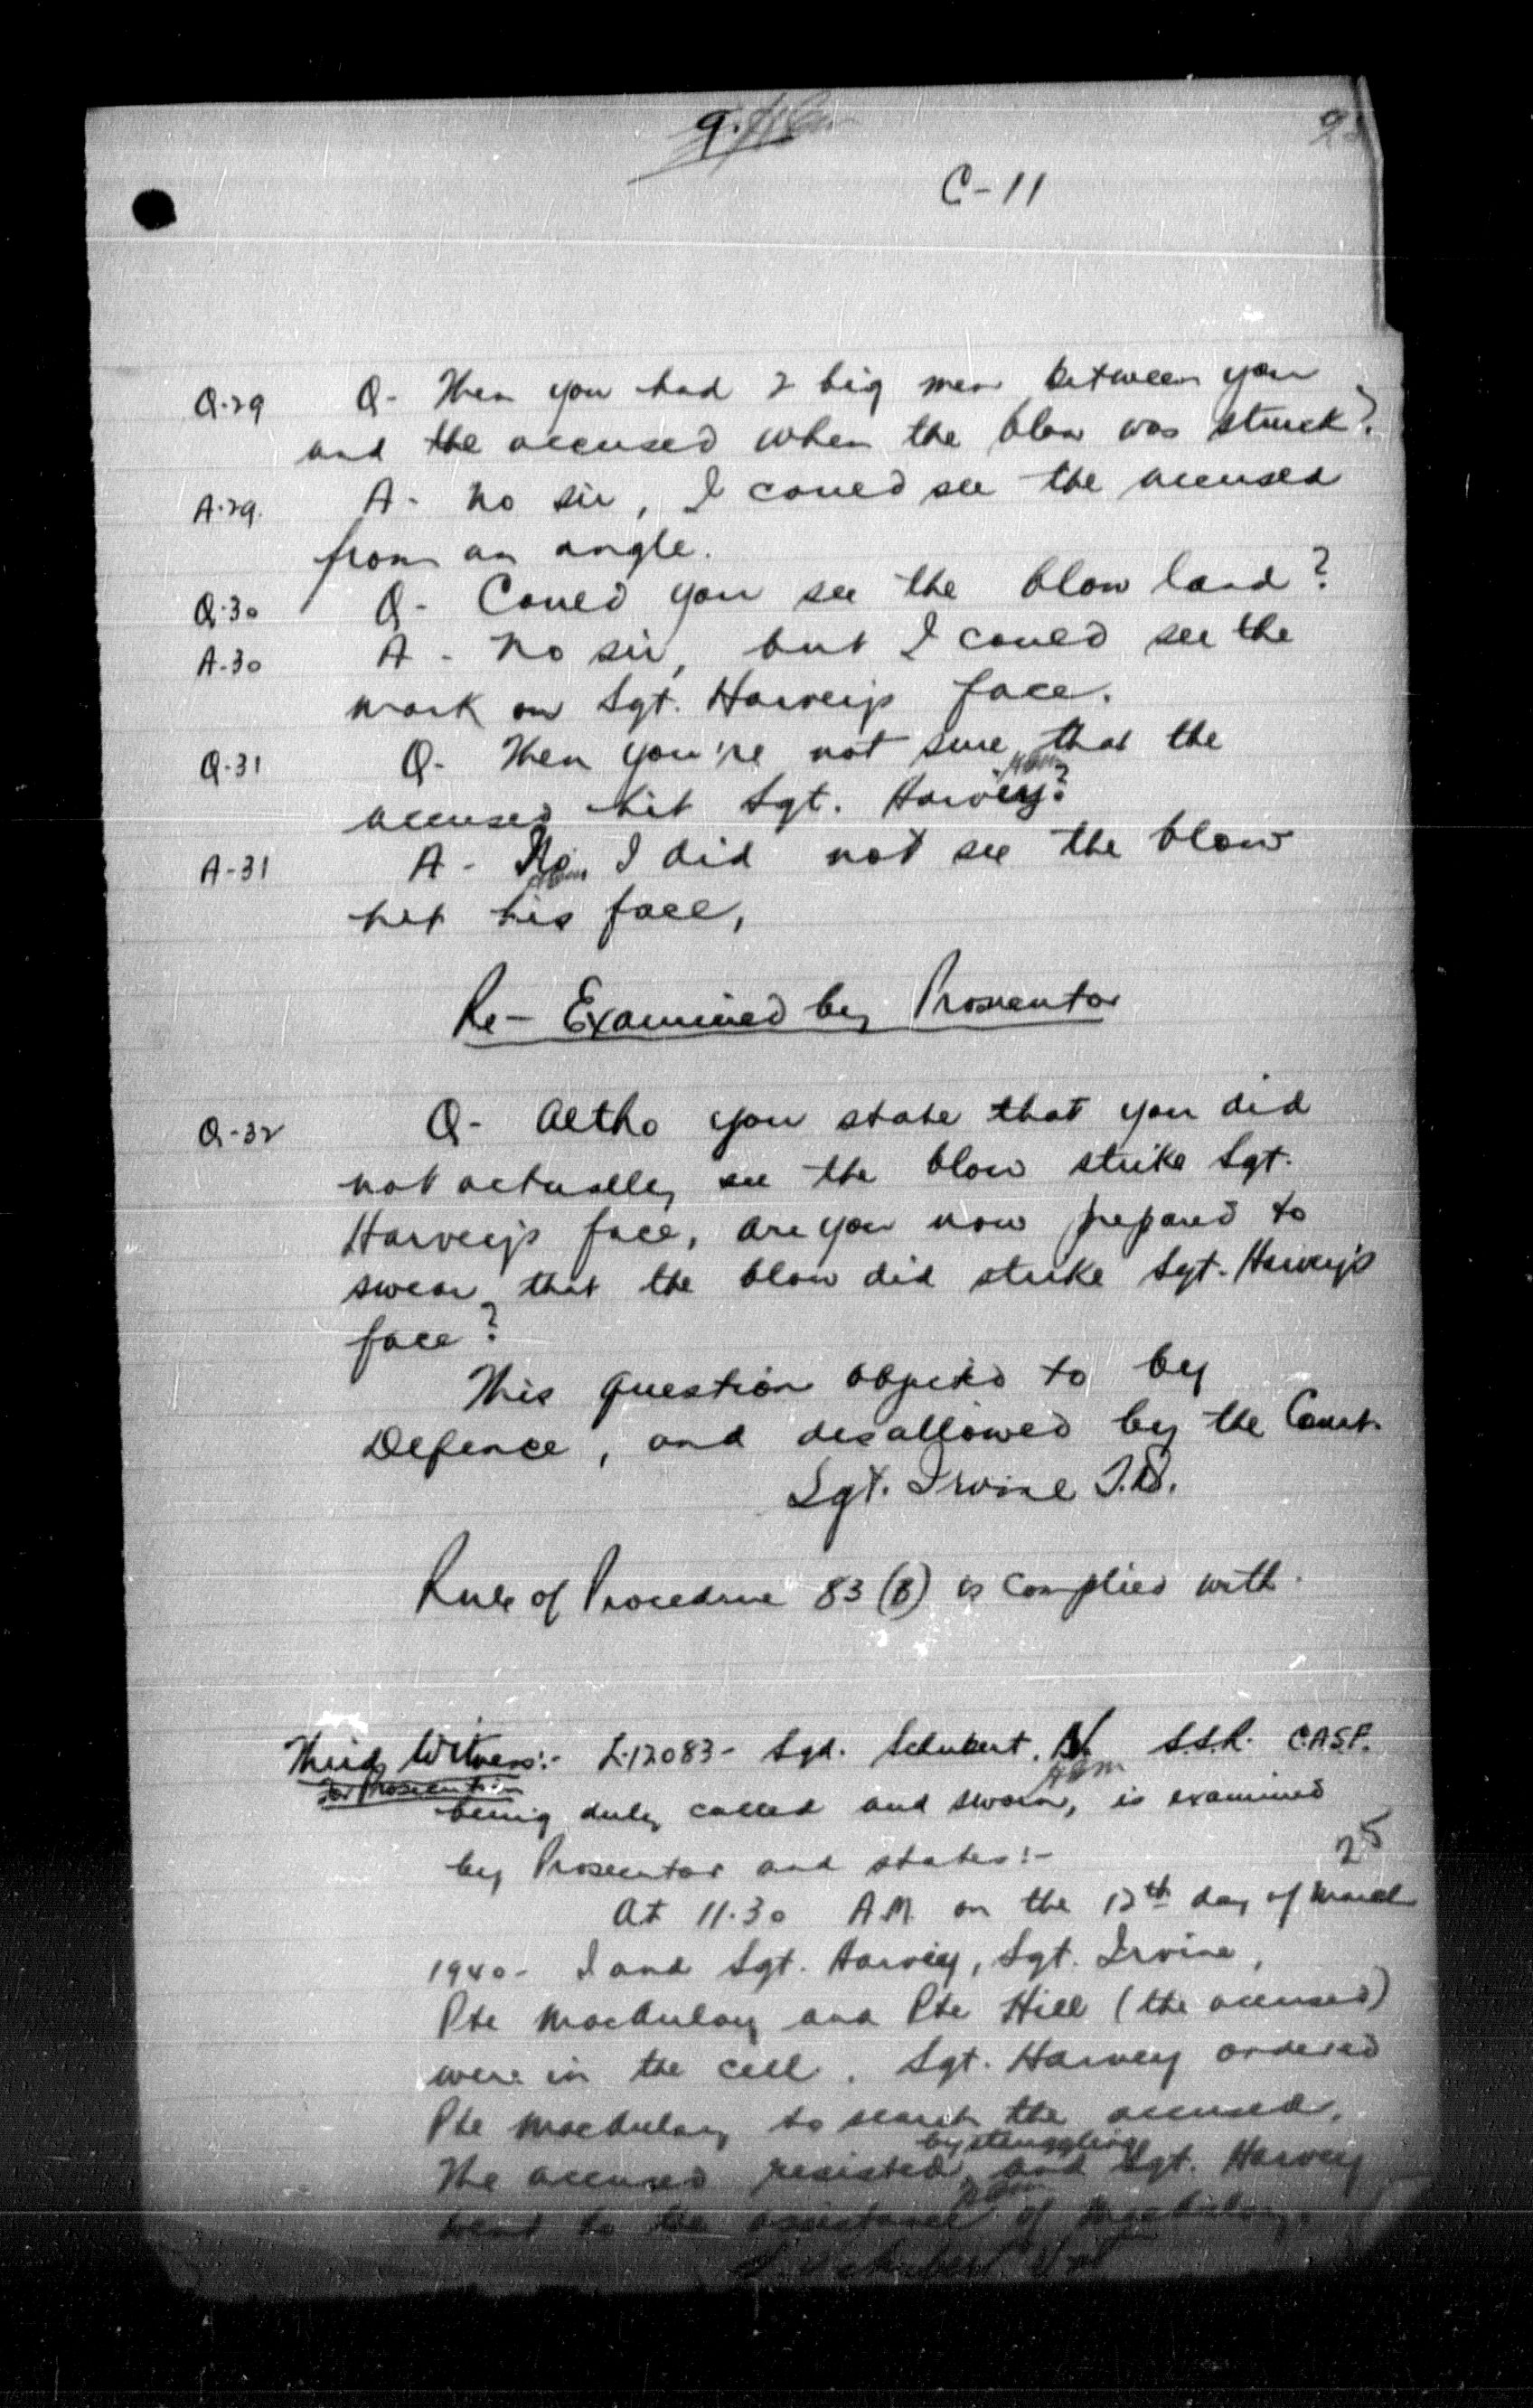 9.
C-11
Q-29 Q- Then you had 2 big men between you
and the accused when the blow was struck?
A-29. A- No sir, I could see the accused
from an angle.
Q-30 Q- Could you see the blow land?
A-30 A- No sir, but I could see the
mark on Sgt. Harvey's face.
Q-31 Q- Then you're not sure that the
accused hit Sgt. Harvey?
A-31 A- No, I did not see the blow
hit his face,
Re-Examined by Prosecutor
Q-32 Q- Altho you state that you did
not actually see the blow strike Sgt.
Harvey's face, are you now prepared to
swear that the blow did strike Sgt. Harvey's
face?
This question objected to by
Defence, and disallowed by the Court.
Sgt. Irvine J.D.
Rule of Procedure 83 (B) is complied with.
Third Witness:- L-12083- Sgt. Schubert, N. S.S.R. C.A.S.F.
For Prosecution
being duly called and sworn, is examined
by Prosecutor and states:-
25
At 11.30 A.M. on the 12th day of March
1940- I and Sgt. Harvey, Sgt. Irvine,
Pte MacAulay and Pte Hill (the accused)
were in the cell. Sgt. Harvey ordered
Pte MacAulay to search the accused.
by struggling
The accused resisted, and Sgt. Harvey
went to the assistance of MacAulay.